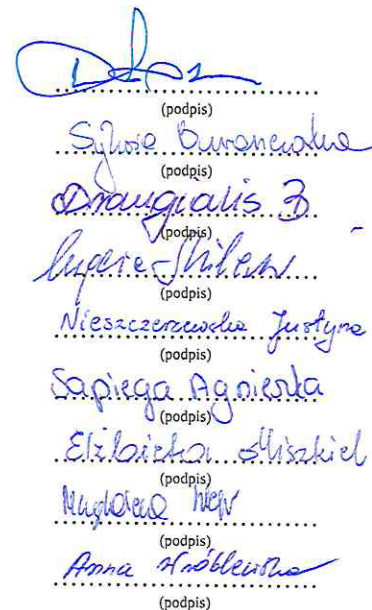 (podpis)
Sylwia
(podpis)
Draugialis B
(podpis)
(podpis)
Nieszczerzewska Justyna
(podpis)
Sapiega Agnieszka
(podpis)
Elżbieta Miszkiel
(podpis)
Magdalena
(podpis)
Anna Wróblewska
(podpis)